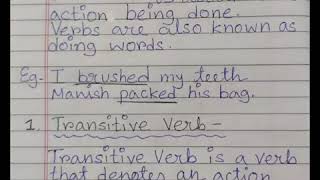 action being done.
Verbs are also known as
doing words.
Eg- I brushed my teeth
Manish packed his bag.
1. Transitive Verb-
Transitive Verb is a verb
that denotes an action